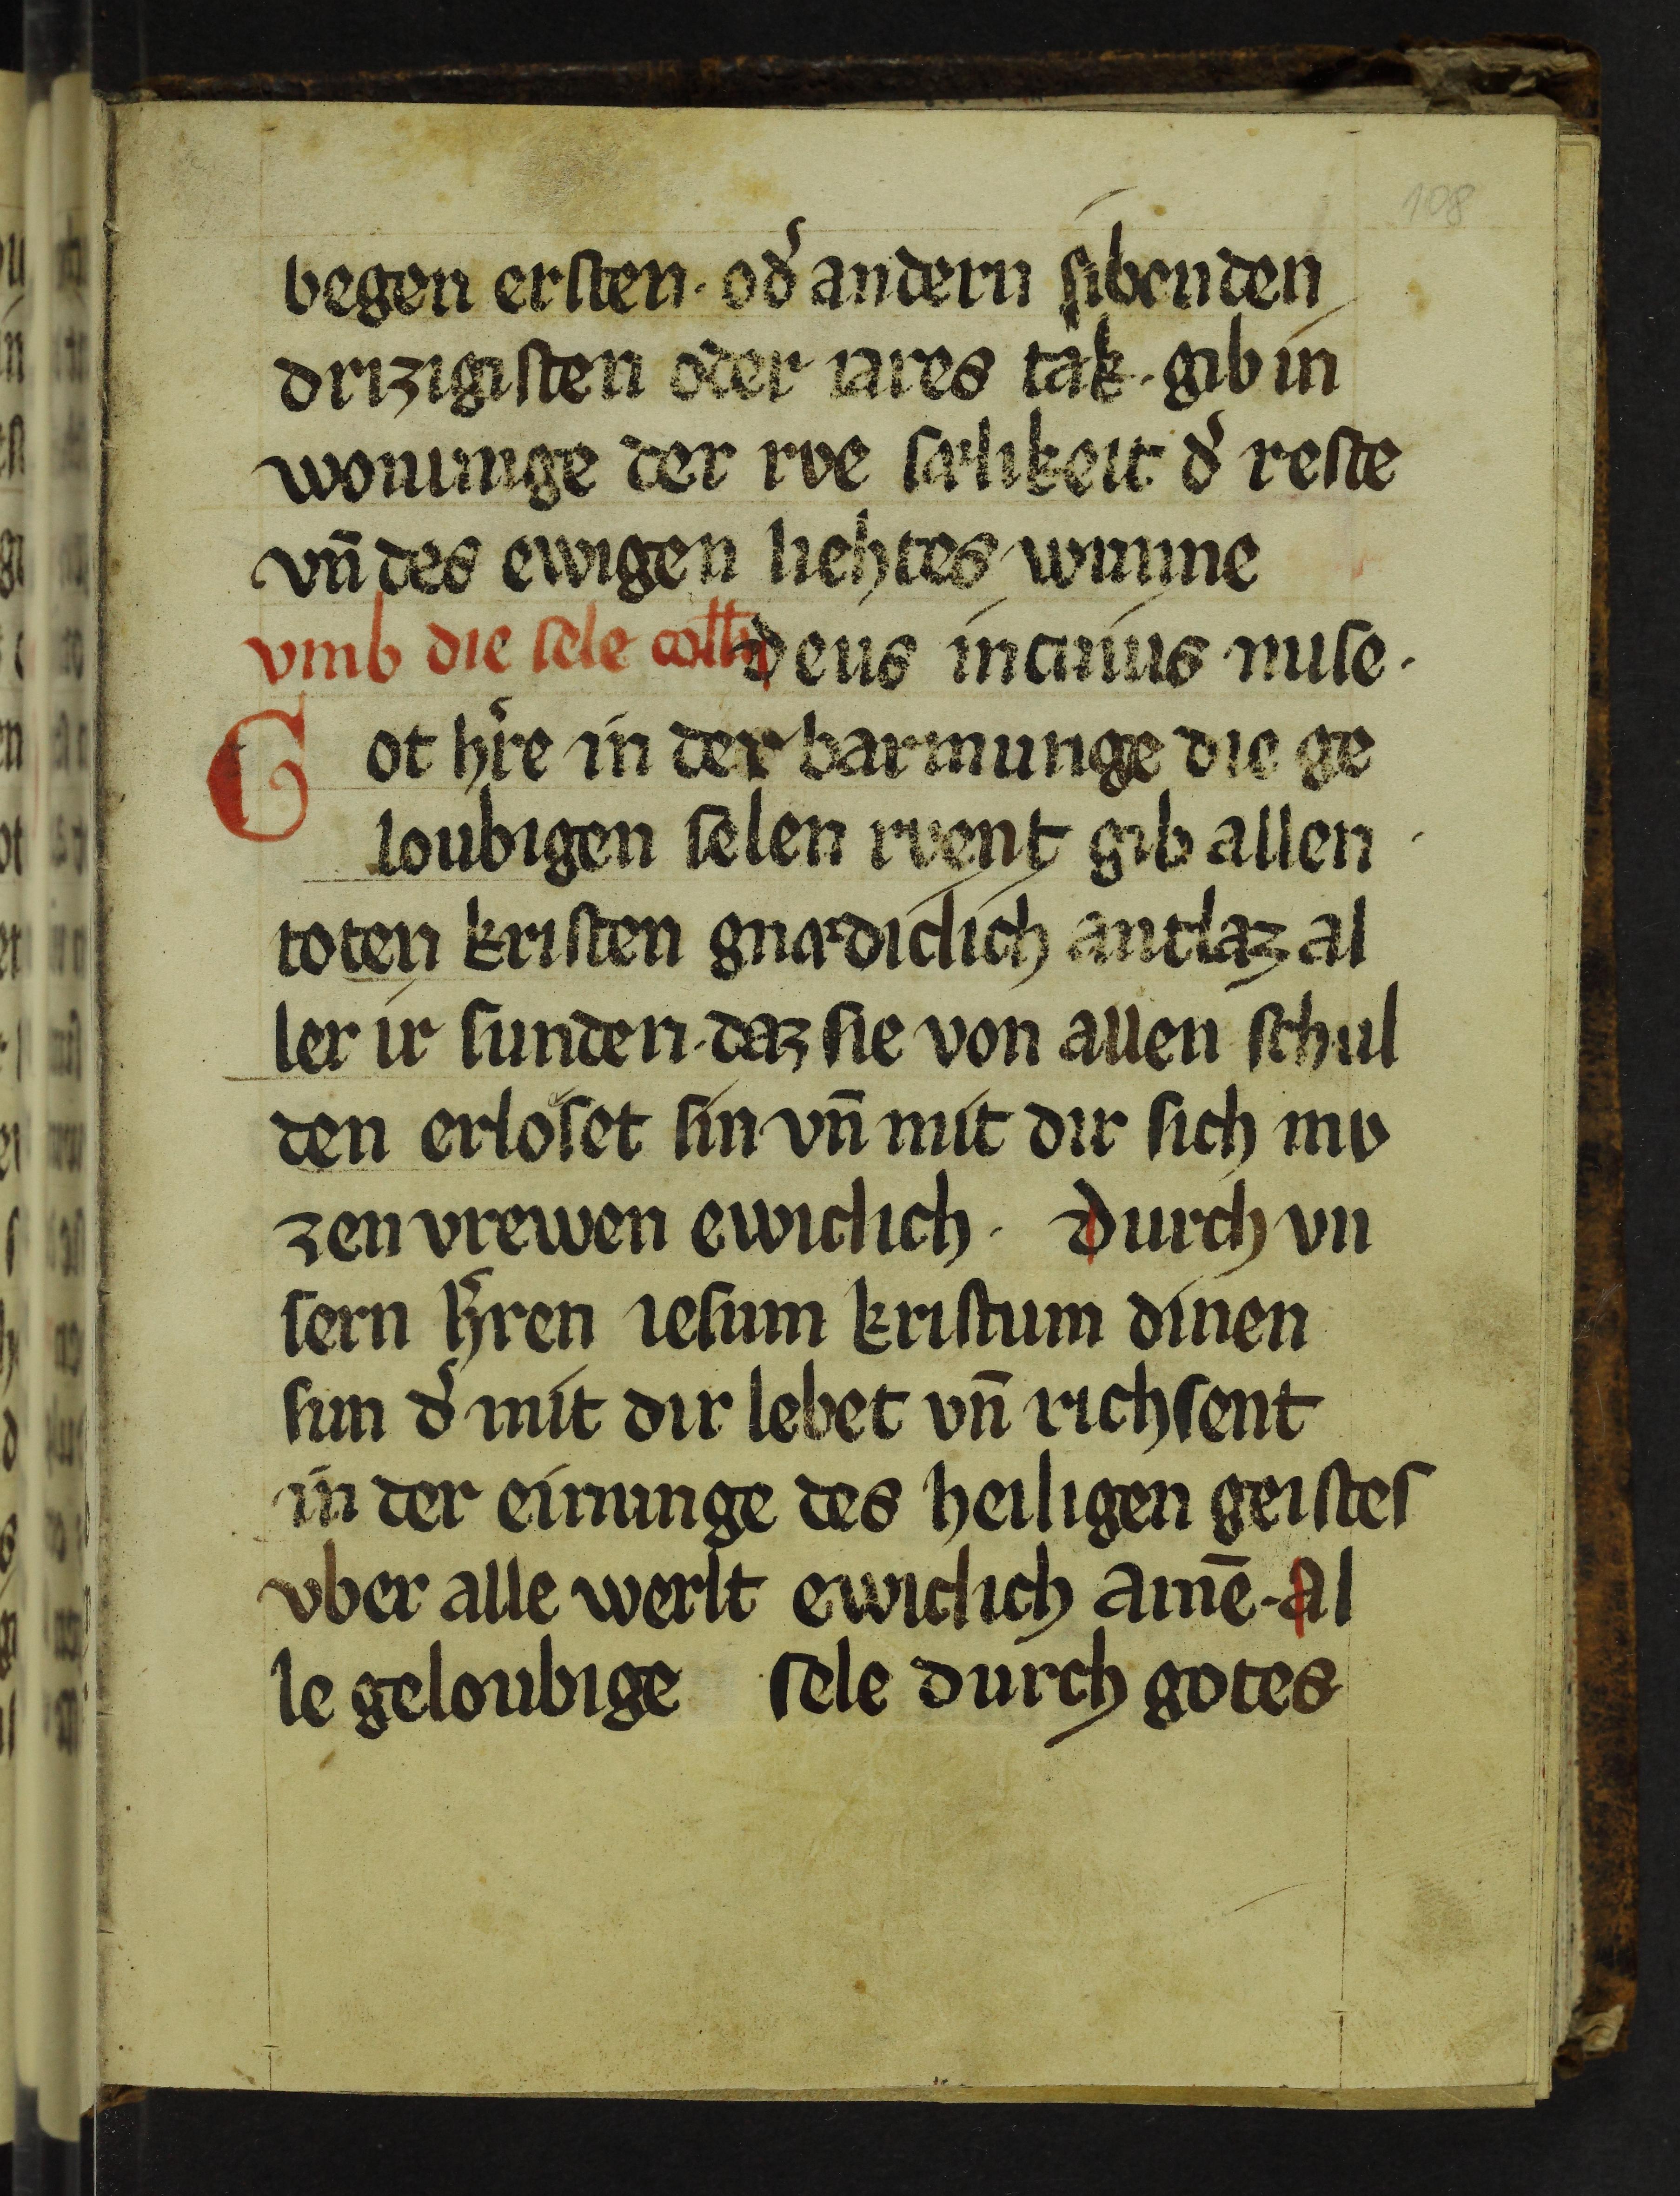 108
begen ersten. od͛ andern sibenden
drizigisten oder iares tak. gib in
wonunge der rve sælikeit. d͛ reste
vn̄ des ewigen liehtes wunne
vmb die sele coll̄ deus in cuius mise.
Got hr͛e in der barmunge die ge
loubigen selen rvent gib allen
toten kristen gnædiclich antlaz al
ler ir sunden. daz sie von allen schul
den erloset sin vn̄ mit dir sich mv
zen vrewen ewiclich. Durch vn
sern hr͛ren iesum kristum dinen
sun d͛ mit dir lebet vn̄ richsent
in der einunge des heiligen geistes
vber alle werlt ewiclich amē. Al
le geloubige sele durch gotes